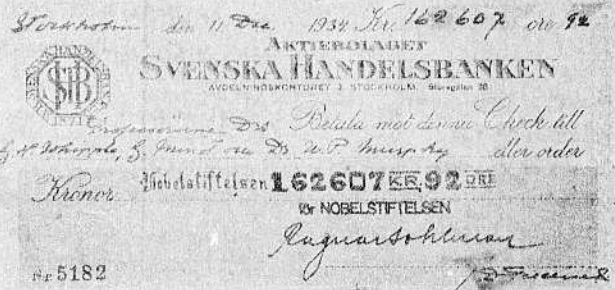 Stockholm den 11 Dec 1934 Kr. 162607 öre 92
AKTIEBOLAGET
SVENSKA HANDELSBANKEN
AVDELNINGSKONTORET J. STOCKHOLM. Sturegatan
SVENSKA HANDELSBANKEN
SHB
Professorerna Drs Betala mot denna Check till
G. H. Whipple, G. Minot och Dr. W. P. Murphy eller order
Kronor Nobelstiftelsen 162607 KR. 92 ÖRE
för NOBELSTIFTELSEN
Ragnar Sohlman
Nr 5182